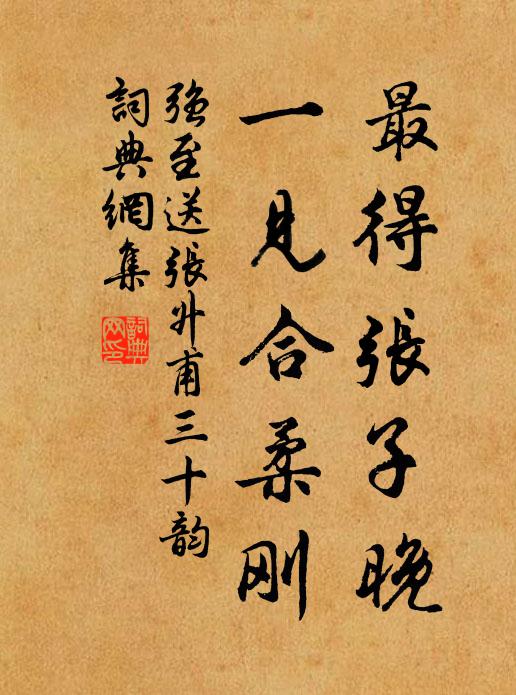 最得張子晚
一見合柔刚
強至送張升甫三十韵
詞典網集
詞典網印